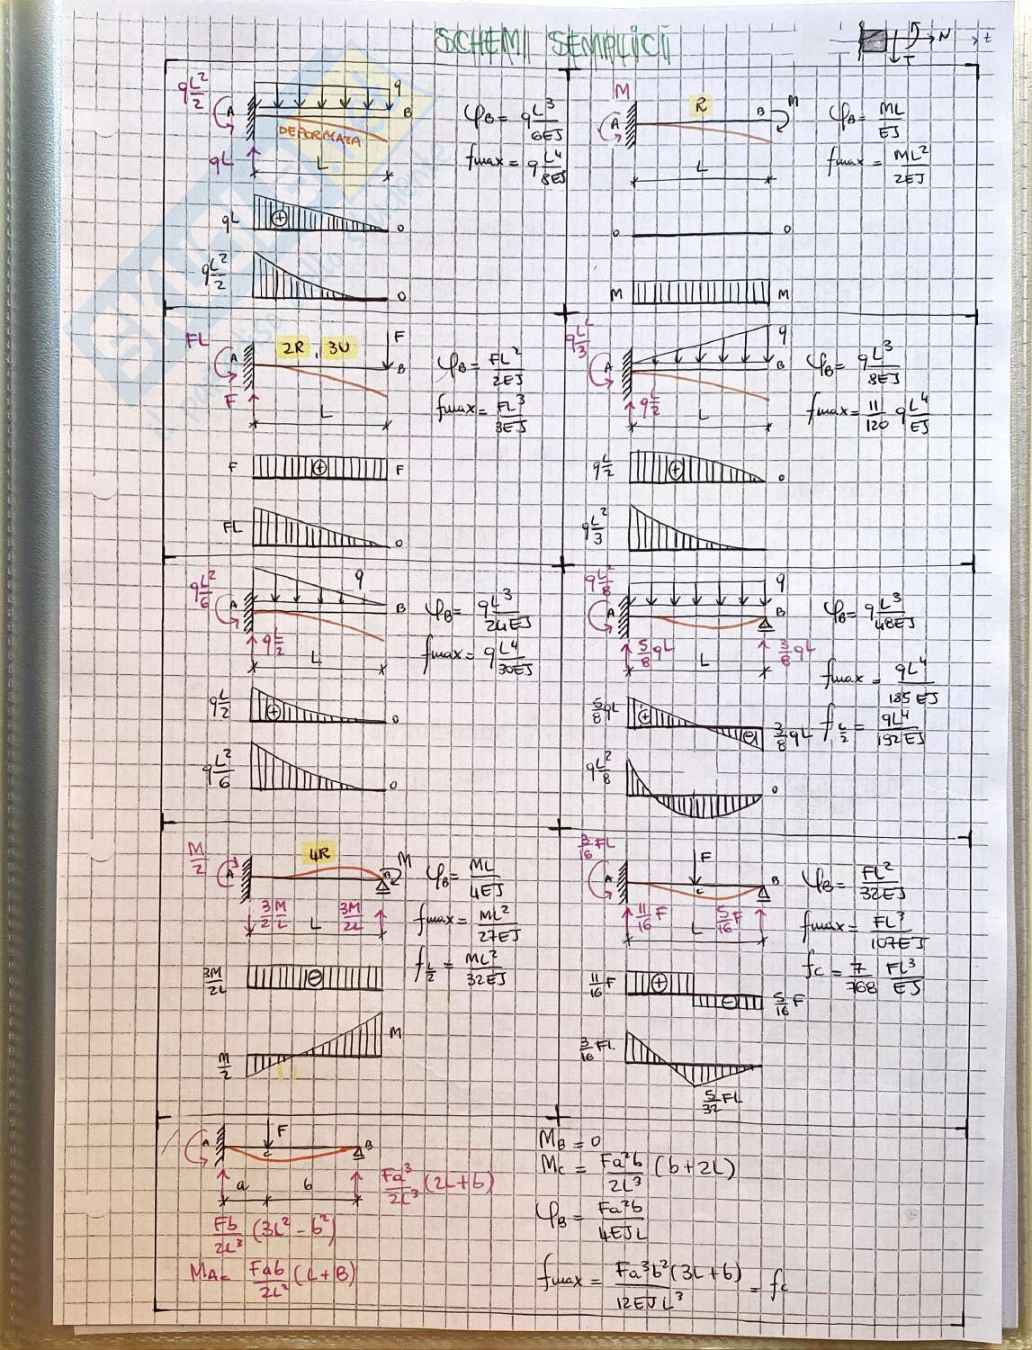 SCHEMI SEMPLICI
N
T
z
qL²/2
A
q
B
DEFORMATA
qL
L
φB = qL³/6EJ
fmax = qL⁴/8EJ
qL
+
0
qL²/2
0
M
A
R
B
M
L
φB = ML/EJ
fmax = ML²/2EJ
0
0
M
M
FL
A
2R, 3U
F
B
F
L
φB = FL²/2EJ
fmax = FL³/3EJ
F
+
F
FL
0
qL²/3
A
q
B
qL/2
L
φB = qL³/8EJ
fmax = 11/120 qL⁴/EJ
qL/2
+
0
qL²/3
qL²/6
A
q
B
qL/2
L
φB = qL³/24EJ
fmax = qL⁴/30EJ
qL/2
+
0
qL²/6
0
qL²/8
A
q
B
5/8 qL
L
3/8 qL
φB = qL³/48EJ
fmax = qL⁴/185EJ
fL/2 = qL⁴/192EJ
5/8 qL
+
-
3/8 qL
qL²/8
0
M/2
A
4R
B
M
3/2 M/L
L
3M/2L
φB = ML/4EJ
fmax = ML²/27EJ
fL/2 = ML²/32EJ
3M/2L
-
M/2
M
3/16 FL
A
F
C
B
11/16 F
L
5/16 F
φB = FL²/32EJ
fmax = FL³/107EJ
fC = 7/768 FL³/EJ
11/16 F
+
-
5/16 F
3/16 FL
5/32 FL
A
F
C
B
a
b
Fa³/2L³ (2L+b)
Fb/2L³ (3L² - b²)
MA = Fab/2L² (L+B)
MB = 0
MC = Fa²b/2L³ (b+2L)
φB = Fa²b/4EJL
fmax = Fa³b²(3L+b)/12EJL³ = fC